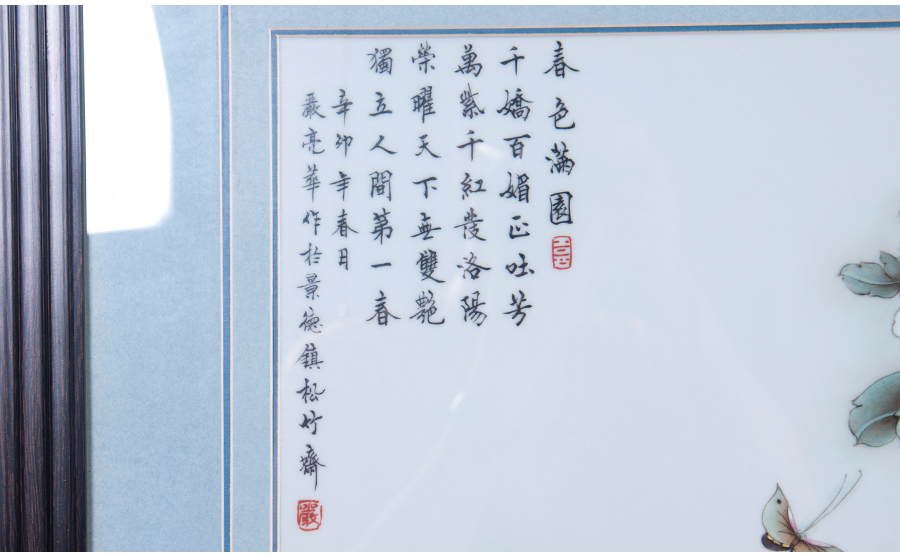 春色滿園
千嬌百媚正吐芳
萬紫千紅發洛陽
榮曜天下無雙艷
獨立人間第一春
辛卯年春日
嚴亮華作於景德鎮松竹齋
嚴